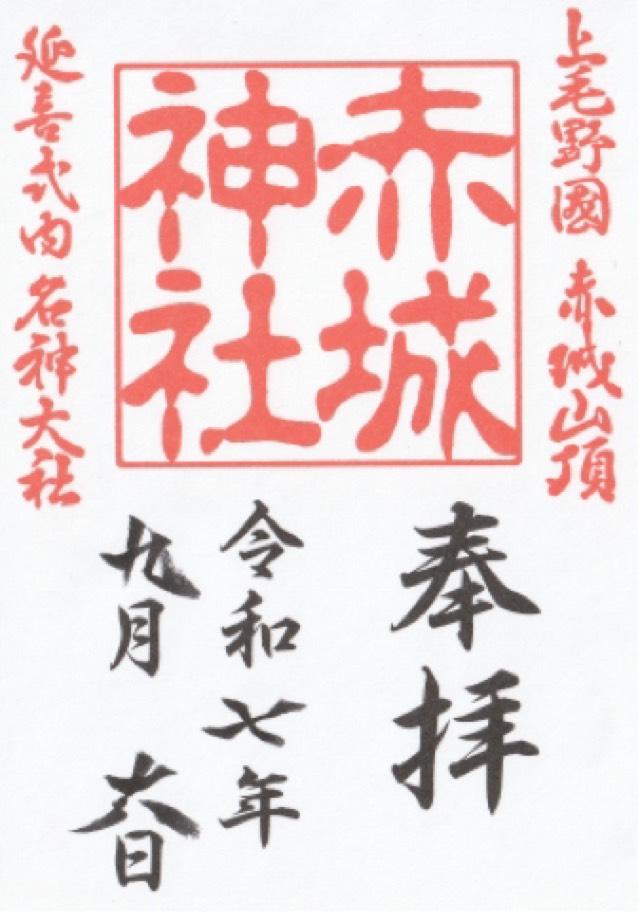 上毛野國 赤城山頂
赤城
神社
延喜式内 名神大社
奉拝
令和七年
九月 十六日